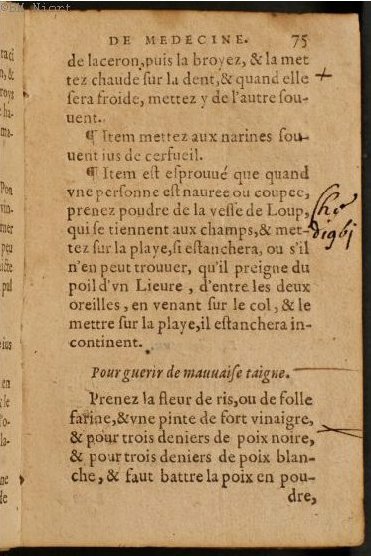 DE MEDECINE. 75
de laceron, puis la broyez, & la met
tez chaude ſur la dent, & quand elle
ſera froide, mettez y de l'autre ſou-
uent.
¶ Item mettez aux narines ſou-
uent ius de cerfueil.
¶ Item eſt eſprouué que quand
vne perſonne eſt nauree ou coupee,
prenez poudre de la veſſe de Loup,
qui ſe tiennent aux champs, & met-
tez ſur la playe, ſi eſtanchera, ou s'il
n'en peut trouuer, qu'il preigne du
poil d'vn Lieure, d'entre les deux
oreilles, en venant ſur le col, & le
mettre ſur la playe, il eſtanchera in-
continent.
Pour guerir de mauuaiſe taigne.
Prenez la fleur de ris, ou de folle
farine, & vne pinte de fort vinaigre,
& pour trois deniers de poix noire,
& pour trois deniers de poix blan-
che, & faut battre la poix en pou-
dre,